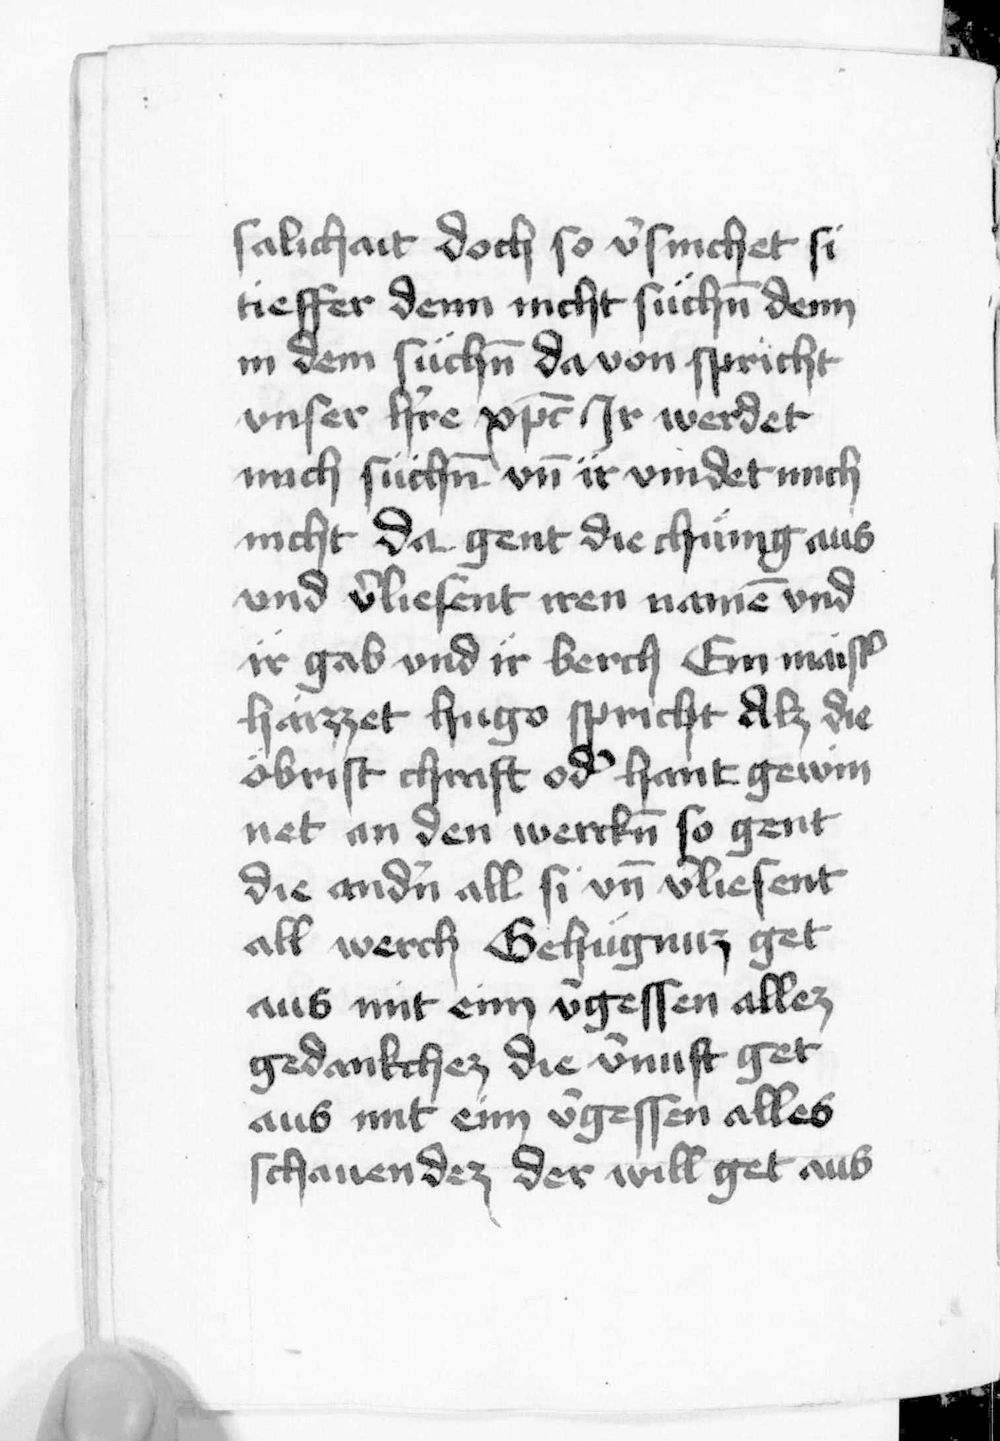 salichait doch so v̓sinchet si
tieffer denn nicht süchn̄ denn
in dem süchn̄ da von spricht
vnser hr̓e xp̄c Ir werdet
mich süchn̄ vn̄ ir vindet mich
nicht da gent die chünig aus
vnd v̓liesent iren namē vnd
ir gab vnd ir berch Ein maist̓
häzzet hugo spricht Alz die
öbrist chraft od̓ hant gewin
net an den werckn̄ so gent
die and̓n all si vn̄ v̓liesent
all werch Gehügnüz get
aus mit eim v̓gessen allez
gedankchez die v̓nuft get
aus mit eim v̓gessen alles
schauendez der will get aus